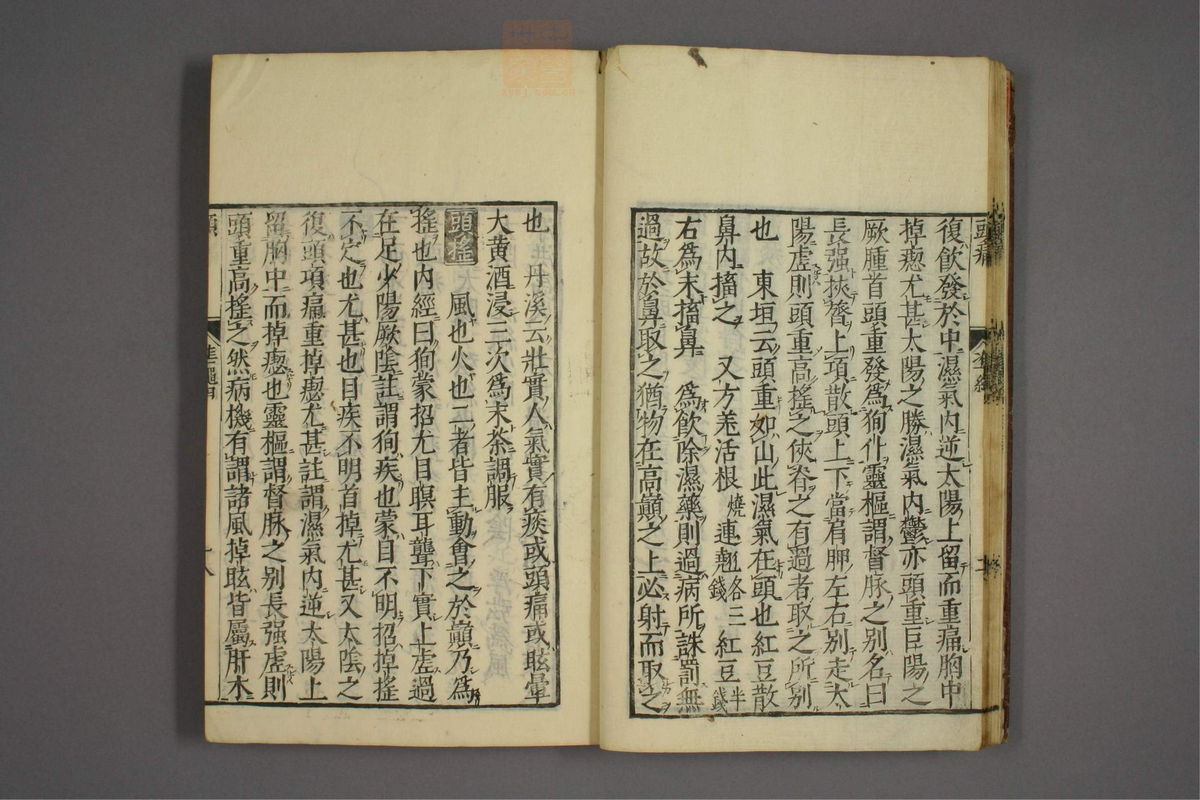 頭痛
復飲發於中濕氣内逆太陽上留而重痛胸中
掉瘛尤甚太陽之勝濕氣内鬱亦頭重巨陽之
厥腫首頭重發爲眴仆靈樞謂督脉之别名曰
長强挾膂上項散頭上下當肩胛左右别走太
陽虚則頭重高揺之侠脊之有過者取之所别
也　東垣云頭重如山此濕氣在頭也紅豆散
鼻内搐之　又方羌活根燒連翹各三錢紅豆半錢
右爲末搐鼻　爲飲除濕藥則過病所誅罰無
過故於鼻取之猶物在高巔之上必射而取之
也　丹溪云壯實人氣實有痰或頭痛或眩暈
大黄酒浸三次爲末茶調服
頭揺　風也火也二者皆主動會之於巔乃爲
揺也内經曰狥蒙招尤目瞑耳聾下實上虚過
在足少陽厥陰註謂狥疾也蒙目不明招掉揺
不定也尤甚也目疾不明首掉尤甚又太陰之
復頭項痛重掉瘛尤甚註謂濕氣内逆太陽上
留胸中而掉瘛也靈樞謂督脉之别長强虚則
頭重高揺之然病機有謂諸風掉眩皆屬肝木